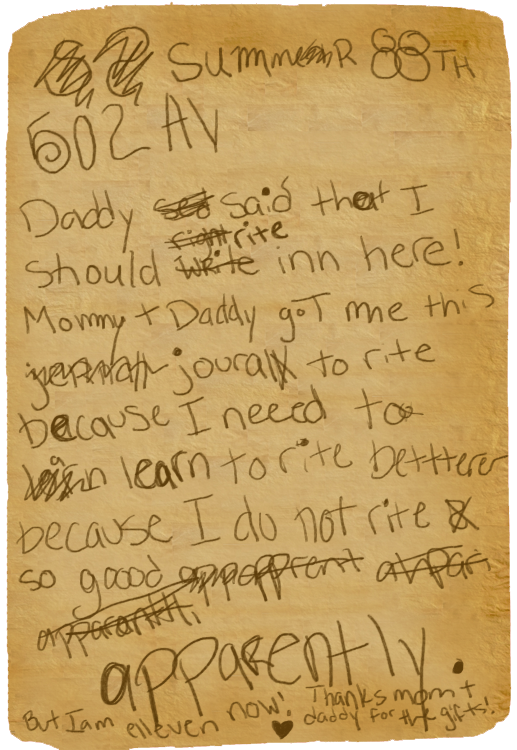 SummeaR 88TH
602 AV
Daddy sed said that I
right rite
should write inn here!
Mommy + Daddy goT me this
joural to rite
because I neeed to
learn to rite bettterer
because I do not rite
so goood apparent appari
apparantkti
apparently.
But I am elleven now! Thanks mom +
daddy for the gifts!